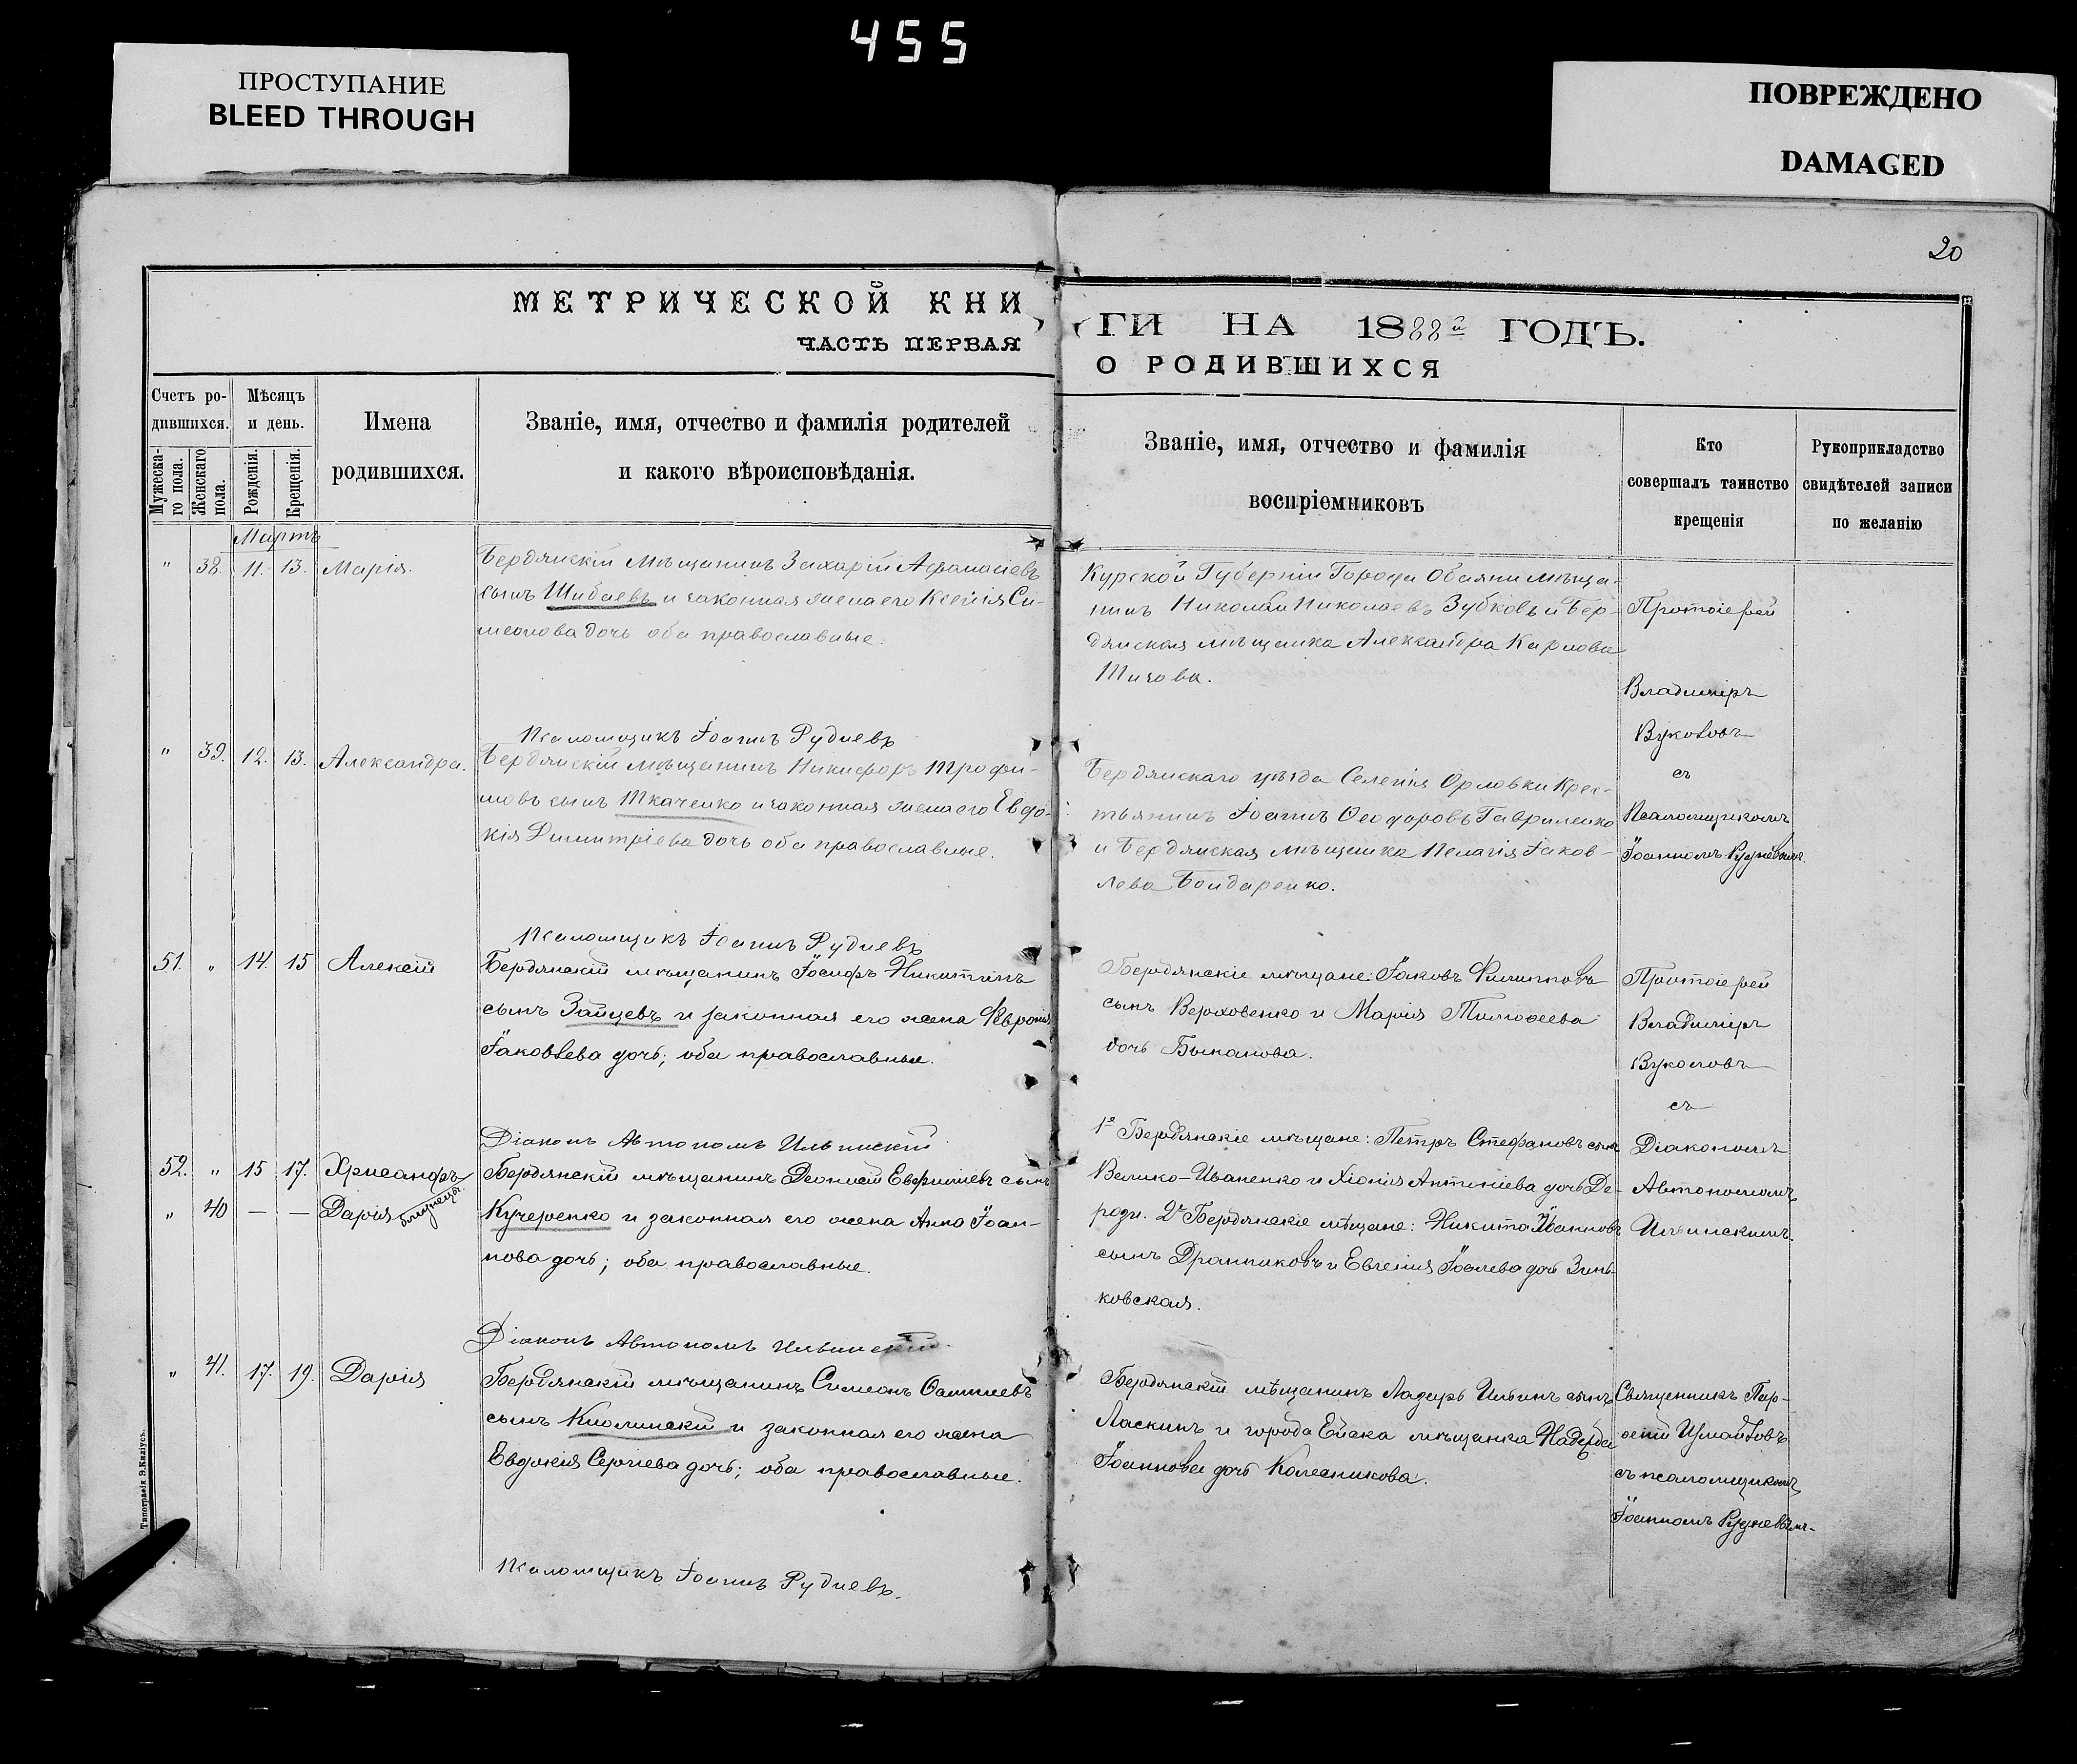 455
ПРОСТУПАНИЕ
BLEED THROUGH
ПОВРЕЖДЕНО
DAMAGED
20
МЕТРИЧЕСКОЙ КНИ
ЧАСТЬ ПЕРВАЯ
ГИ НА 1888й ГОДЪ.
О РОДИВШИХСЯ
Счетъ ро-
дившихся.
Мужеска-
го пола.
Женскаго
пола.
Мѣсяцъ
и день.
Рожденія.
Крещенія.
Имена
родившихся.
Званіе, имя, отчество и фамилія родителей
и какого вѣроисповѣданія.
Званіе, имя, отчество и фамилія
воспріемниковъ
Кто
совершалъ таинство
крещенія
Рукоприкладство
свидѣтелей записи
по желанію
Мартъ
" 38. 11. 13. Марія.
Бердянскій мѣщанинъ Захарій Афанасіевъ
сынъ Шибаевъ и законная жена его Ксенія Си-
меонова дочь оба православные.
Курской Губерніи Города Обояни мѣща-
нинъ Николай Николаевъ Зубковъ и Бер-
дянская мѣщанка Александра Карпова
Титова.
Протоіерей
Владиміръ
Вуколовъ
съ
Псаломщикомъ
Іоанномъ Рудневымъ.
Псаломщикъ Іоаннъ Рудневъ
" 39. 12. 13. Александра.
Бердянскій мѣщанинъ Никифоръ Трофи-
мовъ сынъ Ткаченко и законная жена его Евдо-
кія Димитріева дочь оба православные.
Бердянскаго уѣзда Селенія Орловки Крес-
тьянинъ Іоаннъ Ѳеодоровъ Гавриленко
и Бердянская мѣщанка Пелагія Іаков-
лева Бондаренко.
Псаломщикъ Іоаннъ Рудневъ
51. " 14. 15 Алексій
Бердянскій мѣщанинъ Іосифъ Никитинъ
сынъ Зайцевъ и законная его жена
Іаковлева дочь; оба православные.
Бердянскіе мѣщане: Іаковъ Филипповъ
сынъ Верховенко и Марія Тимоѳеева
дочь Быканова.
Протоіерей
Владиміръ
Вуколовъ
съ
Діакономъ
Автономомъ
Ильинскимъ.
Діаконъ Автономъ Ильинскій
52. " 15 17. Хрисанфъ
" 40 — — Дарія близнецы
Бердянскій мѣщанинъ Деонисій Евфиміевъ сынъ
Кучеренко и законная его жена Анна Іоан-
нова дочь; оба православные.
1е Бердянскіе мѣщане: Петръ Стефановъ сынъ
Велико-Иваненко и Хіонія Антоніева дочь Де-
роди. 2е Бердянскіе мѣщане: Никита Іоанновъ
сынъ Дранниковъ и Евгенія Іоилева дочь Зинь-
ковская.
Діаконъ Автономъ Ильинскій.
" 41. 17. 19. Дарія
Бердянскій мѣщанинъ Симеонъ
сынъ и законная его жена
Евдокія Сергіева дочь; оба православные.
Бердянскій мѣщанинъ Лазарь Ильинъ сынъ
Ласкинъ и города Ейска мѣщанка Надежда
Іоаннова дочь Колесникова.
Священникъ Пар-
ѳеній
съ псаломщикомъ
Іоанномъ Рудневымъ.
Псаломщикъ Іоаннъ Рудневъ.
Типографія Э.Килiусъ.